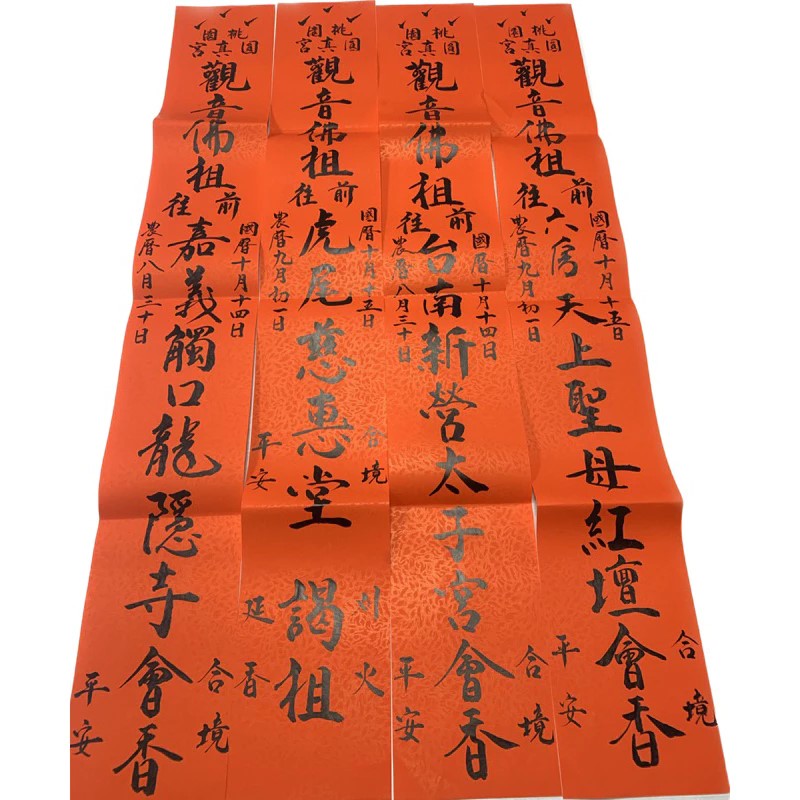 桃園
圓真宮
觀音佛祖
前往
六房天上聖母紅壇會香
國曆十月十五日
農曆九月初一日
合境
平安
桃園
圓真宮
觀音佛祖
前往
台南新營太子宮會香
國曆十月十四日
農曆八月三十日
合境
平安
桃園
圓真宮
觀音佛祖
前往
虎尾慈惠堂
謁祖
國曆十月十五日
農曆九月初一日
合境
平安
刈火
延香
桃園
圓真宮
觀音佛祖
前往
嘉義觸口龍隱寺會香
國曆十月十四日
農曆八月三十日
合境
平安